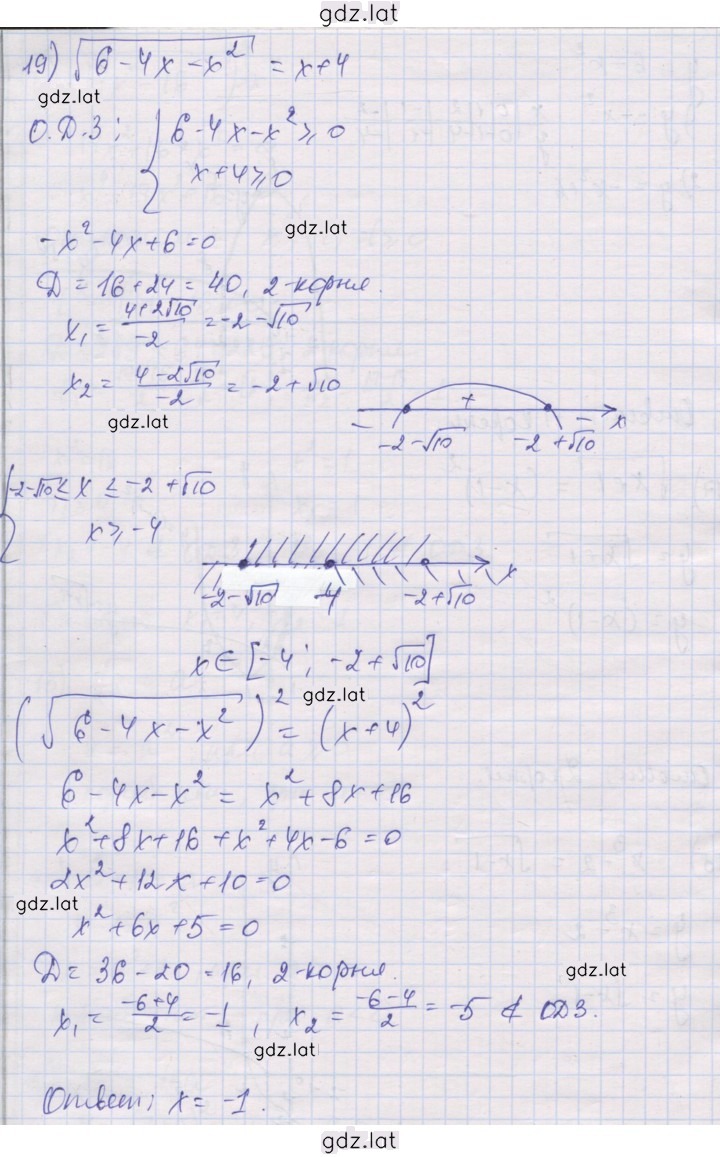 gdz.lat
19) √(6-4x-x²) = x+4
gdz.lat
О.Д.З: { 6-4x-x² ≥ 0
x+4 ≥ 0
gdz.lat
-x²-4x+6=0
D = 16+24 = 40, 2-корня.
x₁ = (4+2√10)/(-2) = -2-√10
x₂ = (4-2√10)/(-2) = -2+√10
gdz.lat
- + - x
-2-√10 -2+√10
{ -2-√10 ≤ x ≤ -2+√10
x ≥ -4
x
-2-√10 -4 -2+√10
x ∈ [-4; -2+√10]
gdz.lat
(√(6-4x-x²))² = (x+4)²
6-4x-x² = x²+8x+16
x²+8x+16+x²+4x-6=0
2x²+12x+10=0
gdz.lat
x²+6x+5=0
D = 36-20 = 16, 2-корня.
gdz.lat
x₁ = (-6+4)/2 = -1, x₂ = (-6-4)/2 = -5 ∉ ОДЗ.
gdz.lat
Ответ: x = -1.
gdz.lat